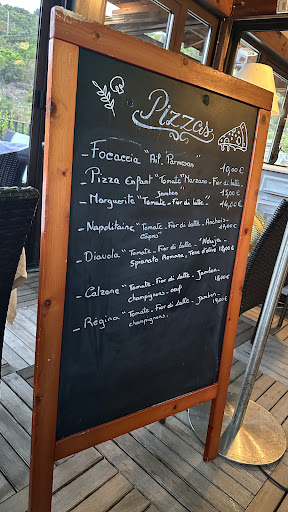 Pizzas
- Focaccia "Ail, Parmesan" 10,00€
- Pizza Enfant "Tomate Marzano - Fior di latte - jambon" 13,00€
- Marguerite "Tomate - Fior di latte" 14,00€
- Napolitaine "Tomate - Fior di latte - Anchois -
Câpres"
- Diavola "Tomate - Fior di latte - 'Nduja -
Spianata Romana,
- Calzone "Tomate - Fior di latte - Jambon -
champignons - oeuf 18,00€
- Régina "Tomate - Fior di latte - jambon
champignons